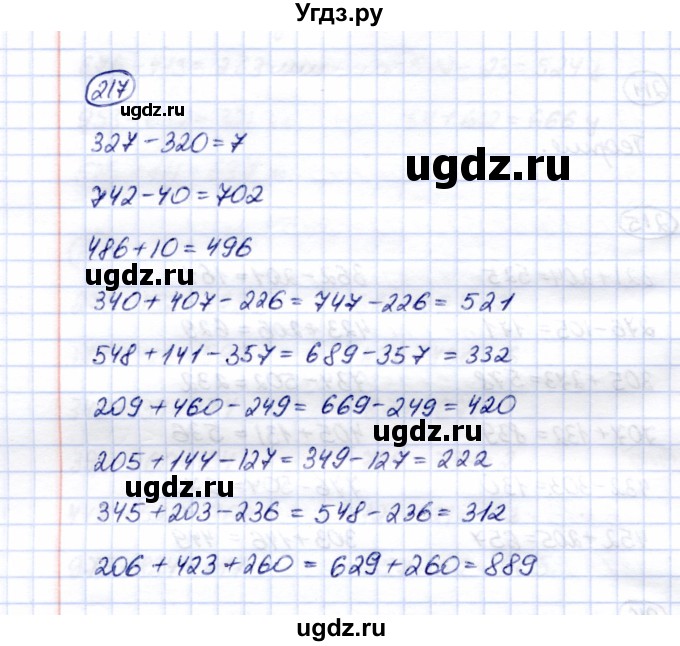 Угдз.ру
217
ugdz.ru
327-320=7
ugdz.ru
742-40=702
486+10=496
ugdz.ru
340+407-226=747-226=521
548+141-357=689-357=332
209+460-249=669-249=420
ugdz.ru
205+144-127=349-127=222
ugdz.ru
345+203-236=548-236=312
206+423+260=629+260=889
ugdz.ru